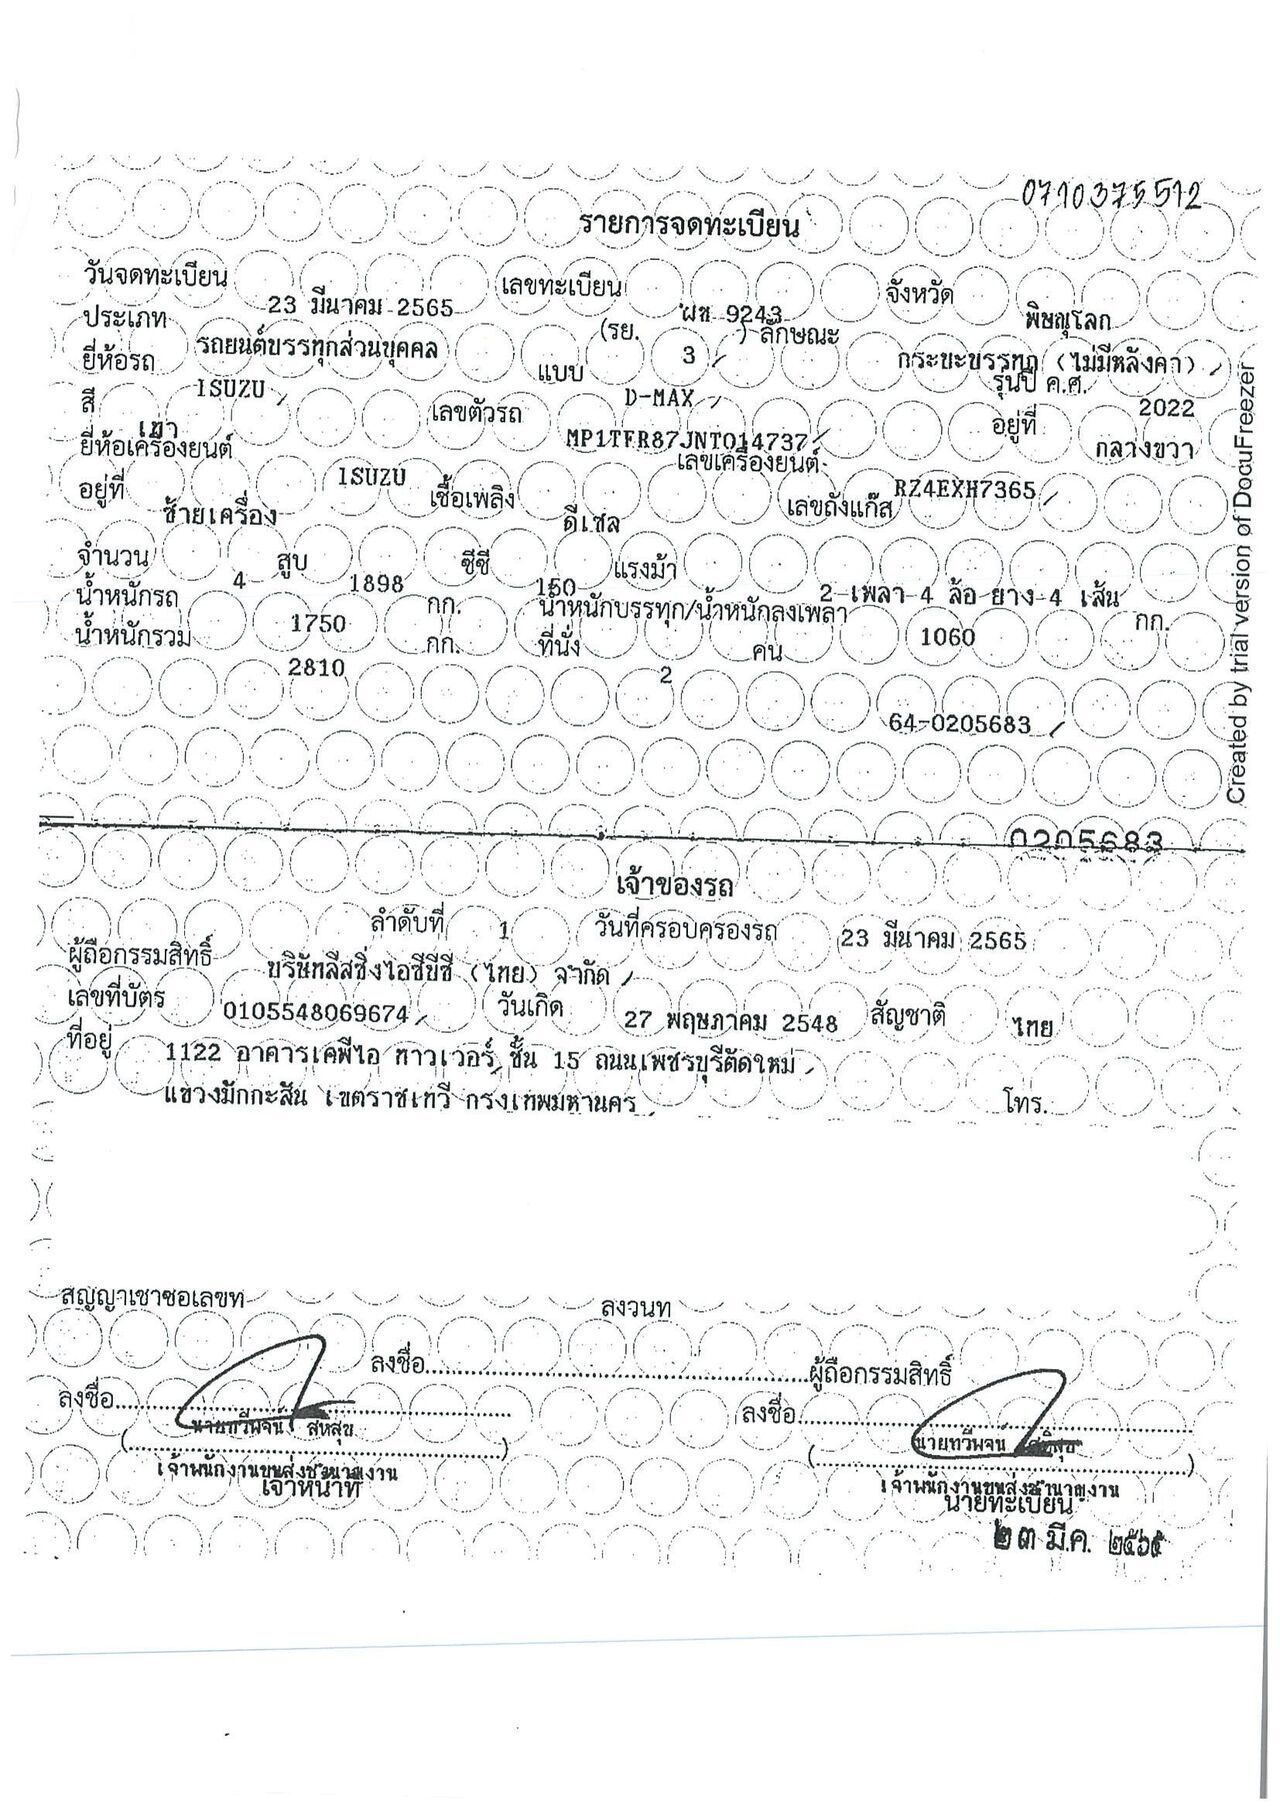 0710375512
รายการจดทะเบียน
วันจดทะเบียน 23 มีนาคม 2565 เลขทะเบียน ผข 9243 จังหวัด พิษณุโลก
ประเภท รถยนต์บรรทุกส่วนบุคคล (รย. 3 ) ลักษณะ กระบะบรรทุก (ไม่มีหลังคา)
ยี่ห้อรถ ISUZU แบบ D-MAX รุ่นปี ค.ศ. 2022
สี เทา เลขตัวรถ MP1TFR87JNT014737 อยู่ที่ กลางขวา
ยี่ห้อเครื่องยนต์ ISUZU เลขเครื่องยนต์ RZ4EXH7365
อยู่ที่ ซ้ายเครื่อง เชื้อเพลิง ดีเซล เลขถังแก๊ส
จำนวน 4 สูบ 1898 ซีซี 150 แรงม้า 2 เพลา 4 ล้อ ยาง 4 เส้น
น้ำหนักรถ 1750 กก. น้ำหนักบรรทุก/น้ำหนักลงเพลา 1060 กก.
น้ำหนักรวม 2810 กก. ที่นั่ง 2 คน
64-0205683
Created by trial version of DocuFreezer
0205683
เจ้าของรถ
ลำดับที่ 1 วันที่ครอบครองรถ 23 มีนาคม 2565
ผู้ถือกรรมสิทธิ์ บริษัทลีสซิ่งไอซีบีซี (ไทย) จำกัด
เลขที่บัตร 0105548069674 วันเกิด 27 พฤษภาคม 2548 สัญชาติ ไทย
ที่อยู่ 1122 อาคารเคพีไอ ทาวเวอร์ ชั้น 15 ถนนเพชรบุรีตัดใหม่
แขวงมักกะสัน เขตราชเทวี กรุงเทพมหานคร โทร.
สัญญาเช่าซื้อเลขที่ ลงวันที่
ลงชื่อ ผู้ถือกรรมสิทธิ์
ลงชื่อ ลงชื่อ
นายทวีพจน์ สหสุข นายทวีพจน์
เจ้าพนักงานขนส่งชำนาญงาน เจ้าพนักงานขนส่งชำนาญงาน
เจ้าหน้าที่ นายทะเบียน
๒๓ มี.ค. ๒๕๖๕